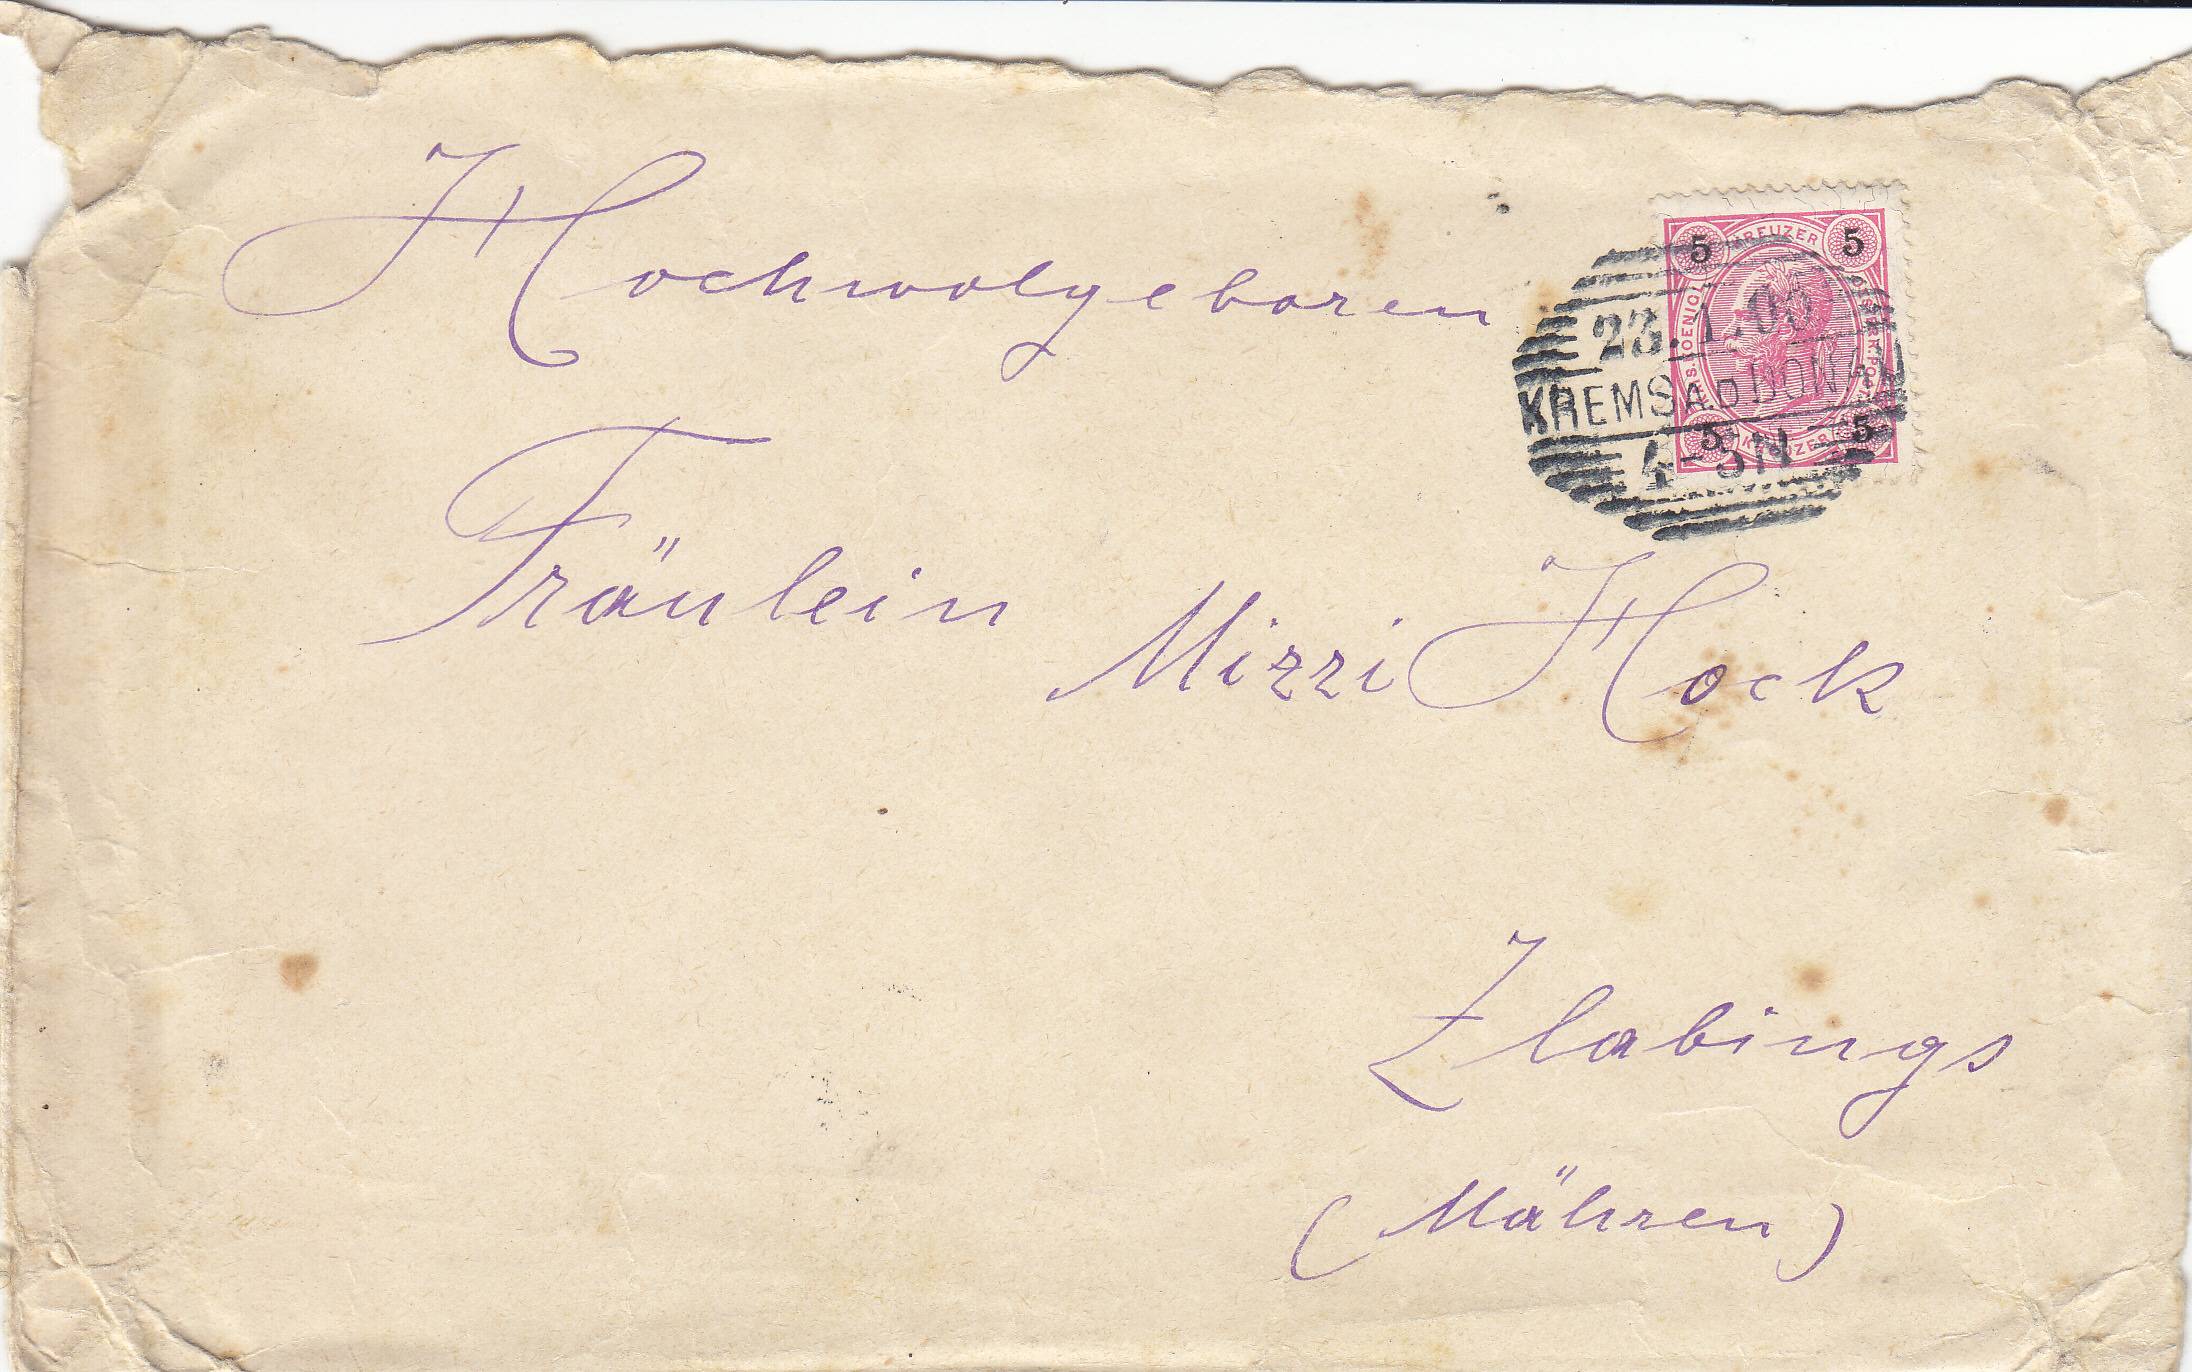 Hochwolgeboren
5 KREUZER 5
KAIS. KOENIGL. OESTERR. POST
23.1.00
KREMS A.D. DONAU
4-5N
5 KREUZER 5
Fräulein Mizzi Hock
Zlabings
(Mähren)